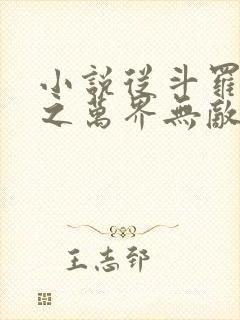 小說從斗羅
之萬界無敵
王志郅